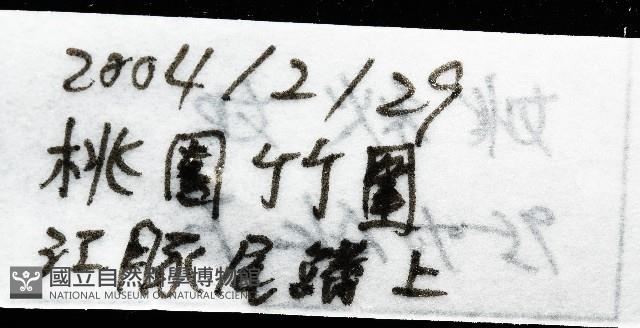 2004/2/29
桃園竹圍
江豚尾鰭上
國立自然科學博物館
NATIONAL MUSEUM OF NATURAL SCIENCE